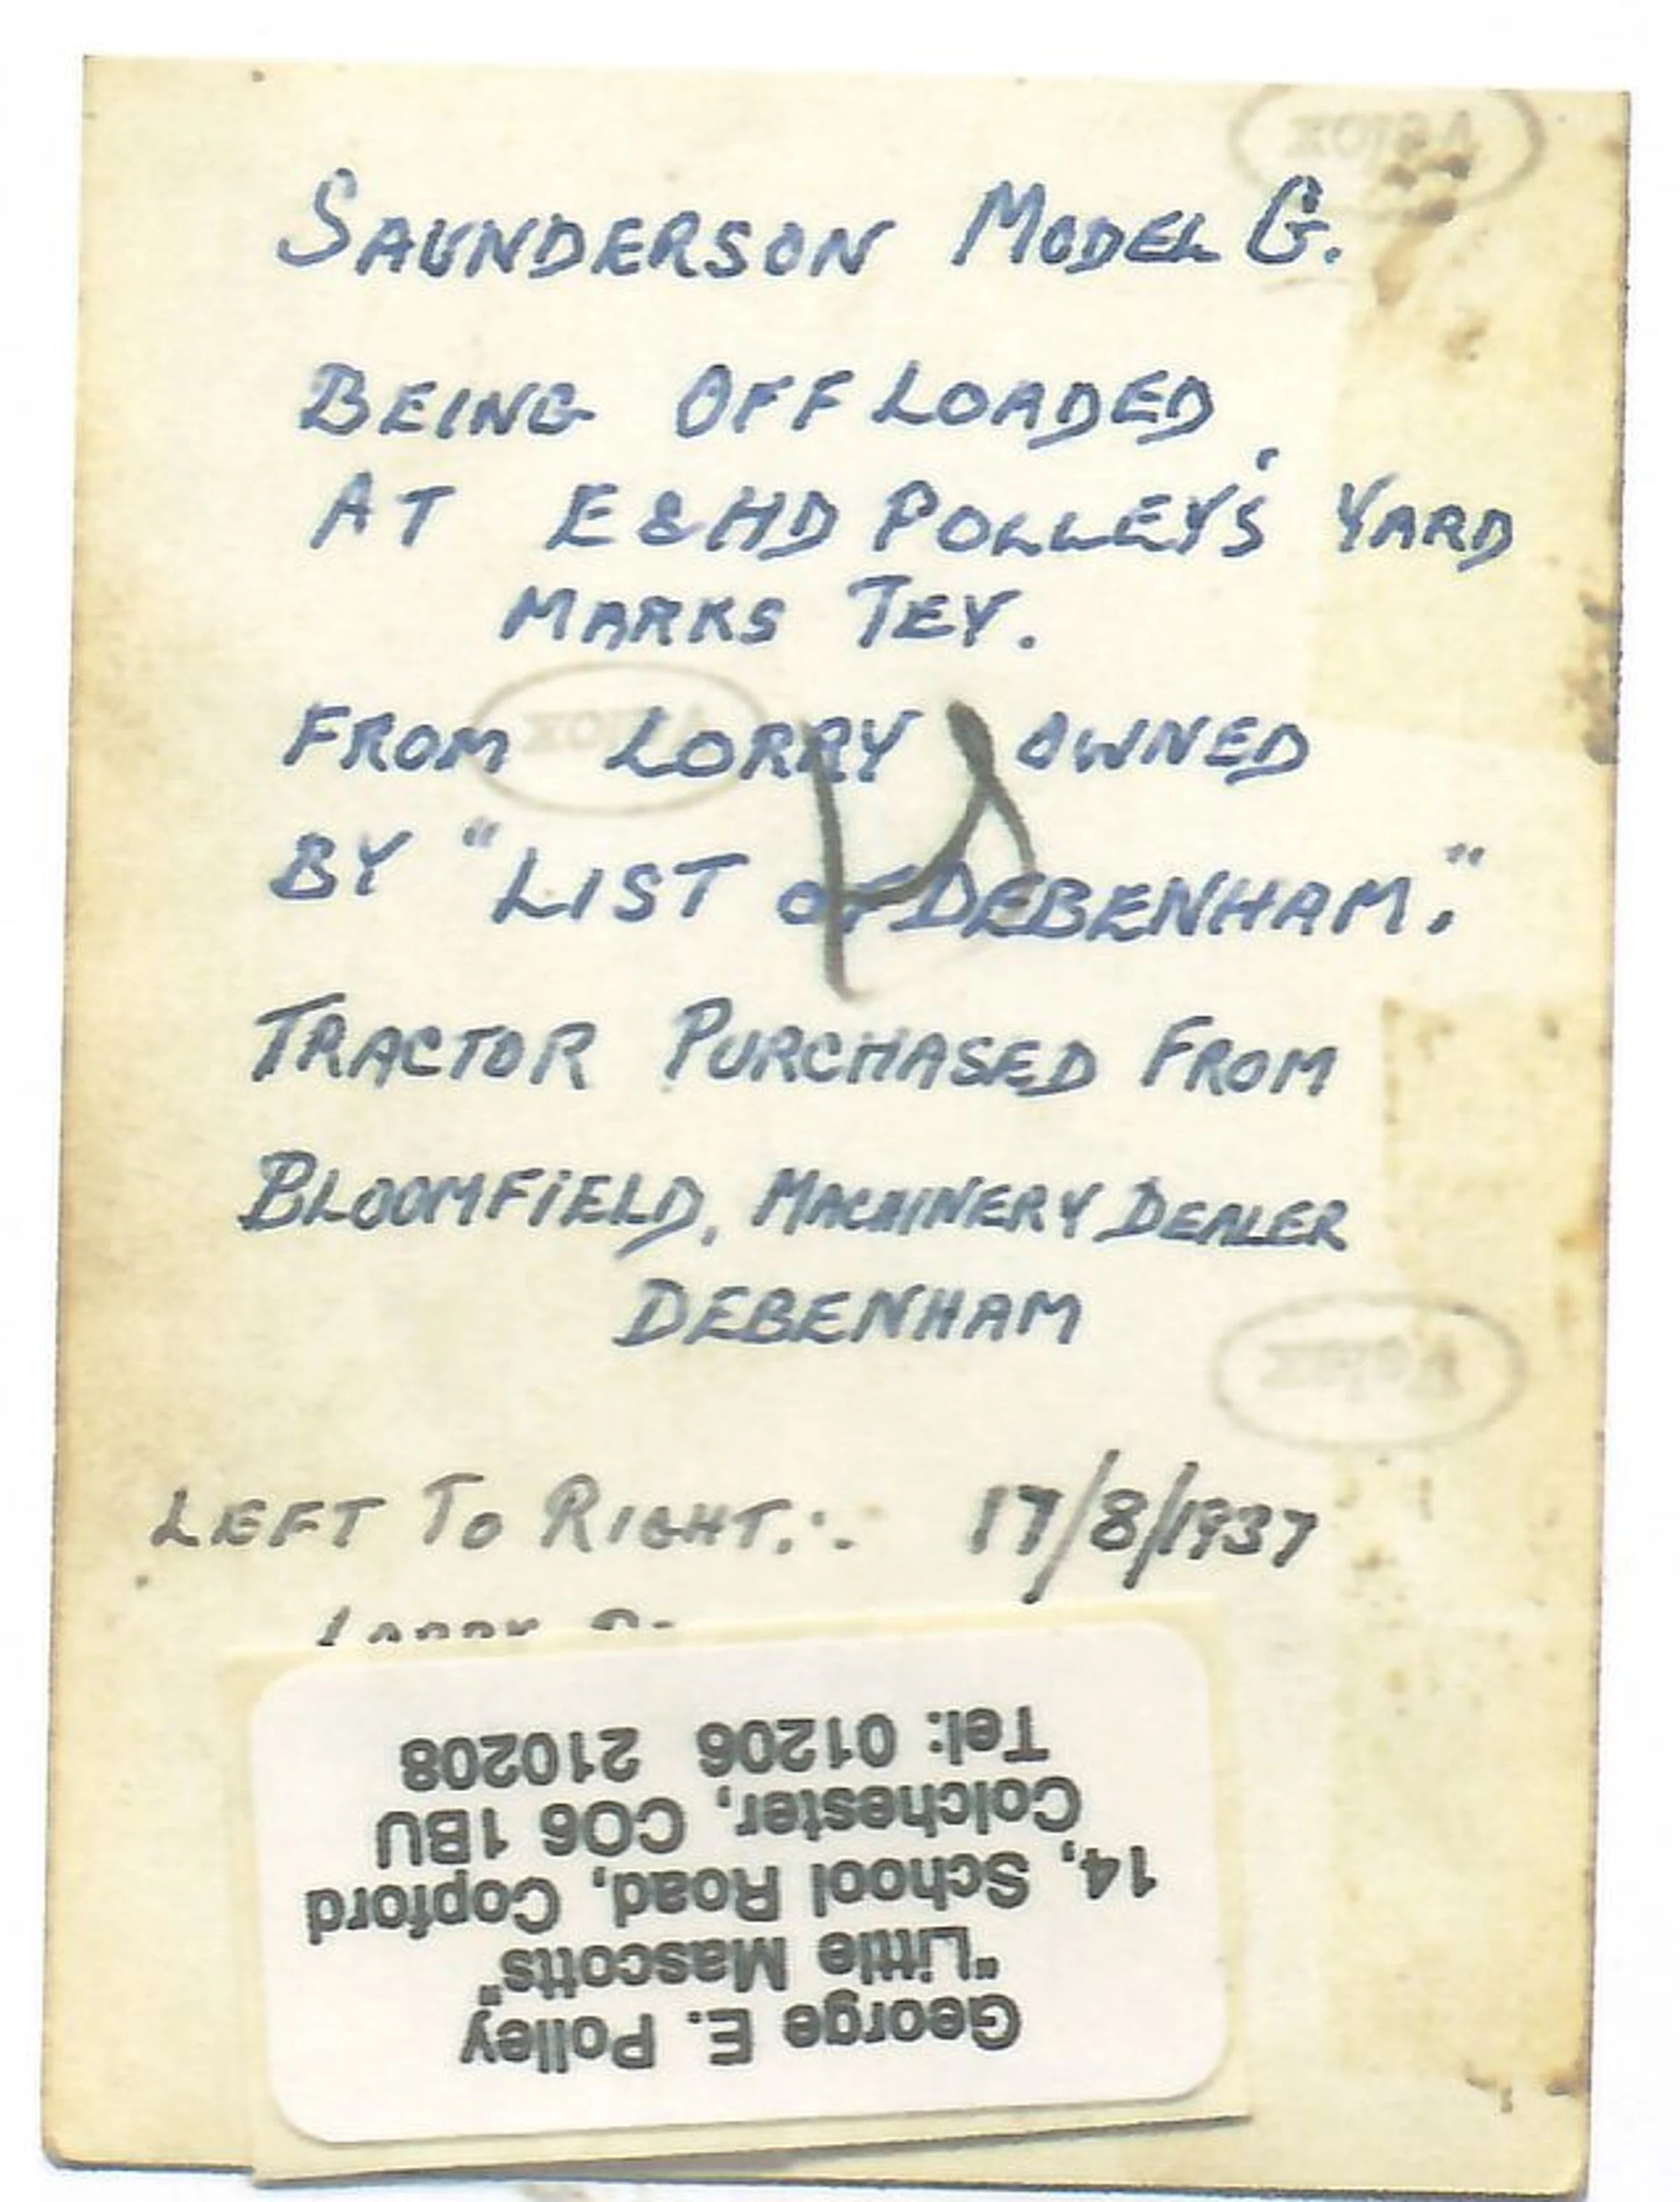 Aslox
SAUNDERSON MODEL G.
BEING OFF LOADED
AT E & HD POLLEY'S YARD
MARKS TEY.
FROM LORRY OWNED
BY "LIST OF DEBENHAM."
TRACTOR PURCHASED FROM
BLOOMFIELD, MACHINERY DEALER
DEBENHAM
LEFT TO RIGHT.:. 17/8/1937
LORRY
George E. Polley
"Little Mascotts"
14, School Road, Copford
Colchester, CO6 1BU
Tel: 01206 210208